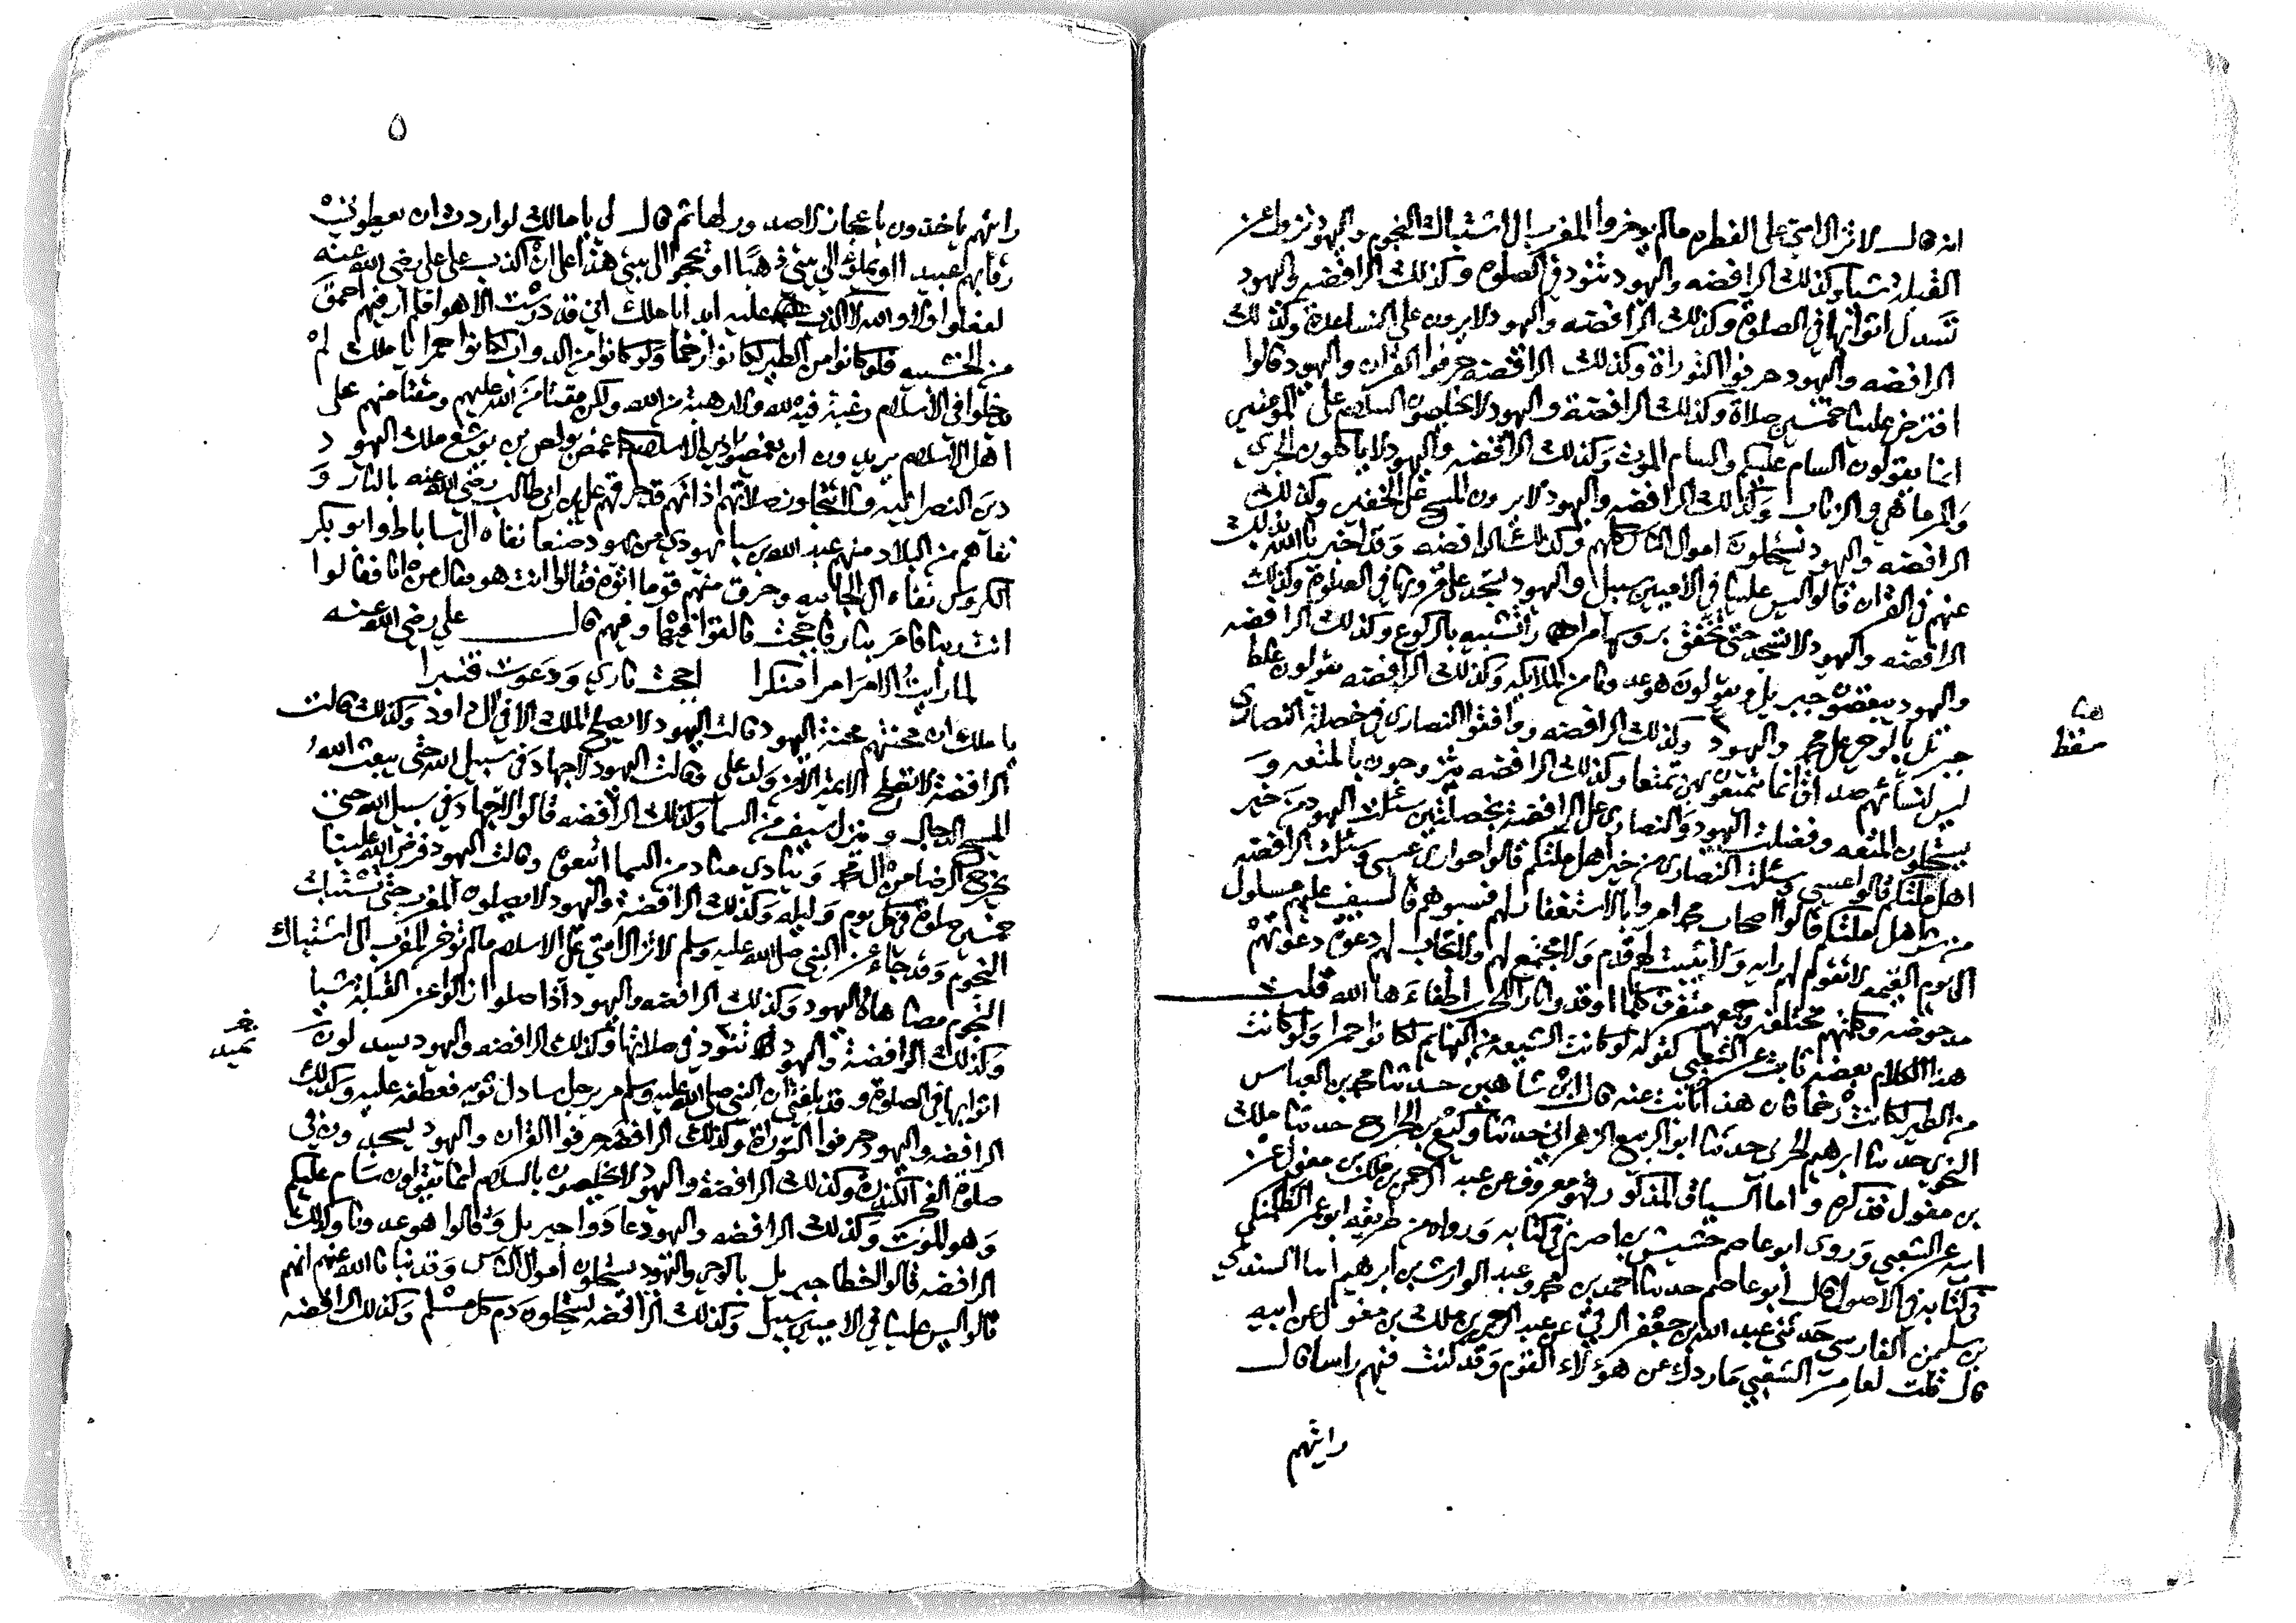 انه قال لا تزال امتي على الفطره ما لم يوخروا المغرب الى اشتباك النجوم واليهود تزول عن
القبلة شيا وكذلك الرافضه واليهود تنود في الصلوة وكذلك الرافضه واليهود
تسدل اثوابها في الصلوة وكذلك الرافضه واليهود لا يرون على النساء عدة وكذلك
الرافضه واليهود حرفوا التوراة وكذلك الرافضه حرفوا القران واليهود قالوا
افترض علينا خمسين صلاة وكذلك الرافضة واليهود لا يخلصون السلام على المومنين
انما يقولون السام عليكم والسام الموت وكذلك الرافضه واليهود لا ياكلون الجري
والمرماهي والزناب وكذلك الرافضه واليهود لا يرون المسح على الخفين وكذلك
الرافضه واليهود تستحلون اموال الناس كلهم وكذلك الرافضه وقد اخبرنا الله بذلك
عنهم في القران قالوا ليس علينا في الاميين سبيل واليهود تسجد على قرونها في الصلوة وكذلك
الرافضه واليهود لا تسجد حتى تخفق بروسها مرارا تشبيه بالركوع وكذلك الرافضه
واليهود يبغضون جبريل ويقولون هو عدونا من الملايكه وكذلك الرافضه يقولون غلط
جبريل بالوحي على محمد واليهود وكذلك الرافضه ووافقوا النصارى في خصلة النصارى
ليس لنسائهم صداق انما يتمتعون بهن تمتعا وكذلك الرافضه يتزوجون بالمتعه و
يستحلون المتعه وفضلت اليهود والنصارى على الرافضة بخصلتين سئلت اليهود من خير
اهل ملتكم قالوا عيسى وسئلت النصارى من خير اهل ملتكم قالوا حوارى عيسى وسئلت الرافضه
من شر اهل ملتكم قالوا اصحاب محمد امروا بالاستغفار لهم فسبوهم فالسيف عليهم مسلول
الى يوم القيمه لا تقوم لهم رايه ولا يثبت لهم قدم ولا مجتمع لهم ولا تجاب لهم دعوة دعوتهم
مدحوضه وكلمتهم مختلفه وجمعهم متفرق كلما اوقدوا نارا للحرب اطفاءها الله قلت
هذا الكلام بعضه ثابت عن الشعبي كقوله لو كانت الشيعه من البهايم لكانوا حمرا ولو كانت
من الطير لكانت رخما فان هذا ثابت عنه قال ابن شاهين حدثنا محمد بن العباس
النحوي حدثنا ابرهيم الحربي حدثنا ابو الربيع الزهراني حدثنا وكيع بن الجراح حدثنا ملك
بن مغول فذكره واما السياق المذكور فهو معروف عن عبد الرحمن بن ملك بن مغول عن
ابيه عن الشعبي وروى ابو عاصم خشيش بن اصرم في كتابه ورواه من طريقه ابو عمر الطلمنكي
في كتابه في الاصول قال ابو عاصم حدثنا احمد بن محمد وعبد الوارث بن ابرهيم اما السندي
بن سليمن الفارسي حدثني عبد الله بن جعفر الرقي عن عبد الرحمن بن ملك بن مغول عن ابيه
قال قلت لعامر الشعبي ما ردك عن هؤلاء القوم وقد كنت فيهم راسا قال
رايتهم
هنا
سقط
٥
رايتهم ياخذون باعجاز لا صدور لها ثم قال لي يا مالك لو اردت ان يعطوني
رقابهم عبيدا او يملوا لي بيتي ذهبا او يحجوا الى بيتي هذا على ان اكذب على علي رضي الله عنه
لفعلوا ولا والله لا اكذب عليه ابدا يا ملك اني قد درست الاهوا فلم ار فيهم احمق
من الخشبيه فلو كانوا من الطير لكانوا رخما ولو كانوا من الدواب لكانوا حمرا يا ملك لم
يدخلوا في الاسلام رغبة فيه لله ولا رهبة من الله ولكن مقتا من الله عليهم ومقتا منهم على
اهل الاسلام يريدون ان يغمصوا دين الاسلام كما غمص بولص بن يوشع ملك اليهود
دين النصرانيه ولا تتجاوز صلاتهم اذانهم قد حرقهم علي بن ابي طالب رضي الله عنه بالنار و
نفاهم من البلاد منهم عبد الله بن سبا يهودي من يهود صنعا نفاه الى ساباط وابو بكر
الكروس نفاه الى الجابيه وحرق منهم قوما اتوه فقالوا انت هو فقال من انا فقالوا
انت ربنا فامر بنار فاججت فالقوا فيها وفيهم قال علي رضي الله عنه
لما رايت الامر امرا منكرا اججت ناري ودعوت قنبرا
يا ملك ان محنتهم محنة اليهود قالت اليهود لا يصلح الملك الا في ال داود وكذلك قالت
الرافضة لا تصلح الامة الا في ولد علي وقالت اليهود لا جهاد في سبيل الله حتى يبعث الله
المسيح الدجال وينزل سيف من السما وكذلك الرافضه قالوا لا جهاد في سبيل الله حتى
يخرج الرضا من ال محمد وينادي مناد من السما اتبعوه وقالت اليهود فرض الله علينا
خمسين صلوة في كل يوم وليله وكذلك الرافضة واليهود لا يصلون المغرب حتى تشتبك
النجوم وقد جاء عن النبي صلى الله عليه وسلم لا تزال امتي على الاسلام ما لم توخر المغرب الى اشتباك
النجوم مضاهاة اليهود وكذلك الرافضه واليهود اذا صلوا زالوا عن القبلة شيا
وكذلك الرافضة واليهود تنود في صلاتها وكذلك الرافضه واليهود يسدلون
اثوابها في الصلوة وقد بلغني ان النبي صلى الله عليه وسلم مر برجل سادل ثوبه فعطفه عليه وكذلك
الرافضه واليهود حرفوا التوراة وكذلك الرافضه حرفوا القران واليهود يسجدون في
صلوة الفجر الكندرة وكذلك الرافضة واليهود لا يخلصون بالسلام انما يقولون سام عليكم
وهو الموت وكذلك الرافضه واليهود عادوا جبريل وقالوا هو عدونا وكذلك
الرافضه قالوا اخطا جبريل بالوحي واليهود يستحلون اموال الناس وقد نبانا الله عنهم انهم
قالوا ليس علينا في الاميين سبيل وكذلك الرافضه يستحلون دم كل مسلم وكذلك الرافضه